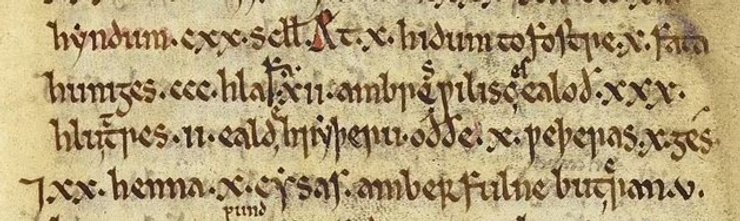 hyndum · cxx · scll̄. Æt · x · hidum to fostre · x · fata
huniges · ccc · hlafa · xii · ambres ƿilisces ealoð · xxx ·
hluttres · ii · ealde hryþeru · oððe · x · ƿeþeras · x · ges
⁊ xx · henna · x · cysas · amber fulne buteran · v ·
pund